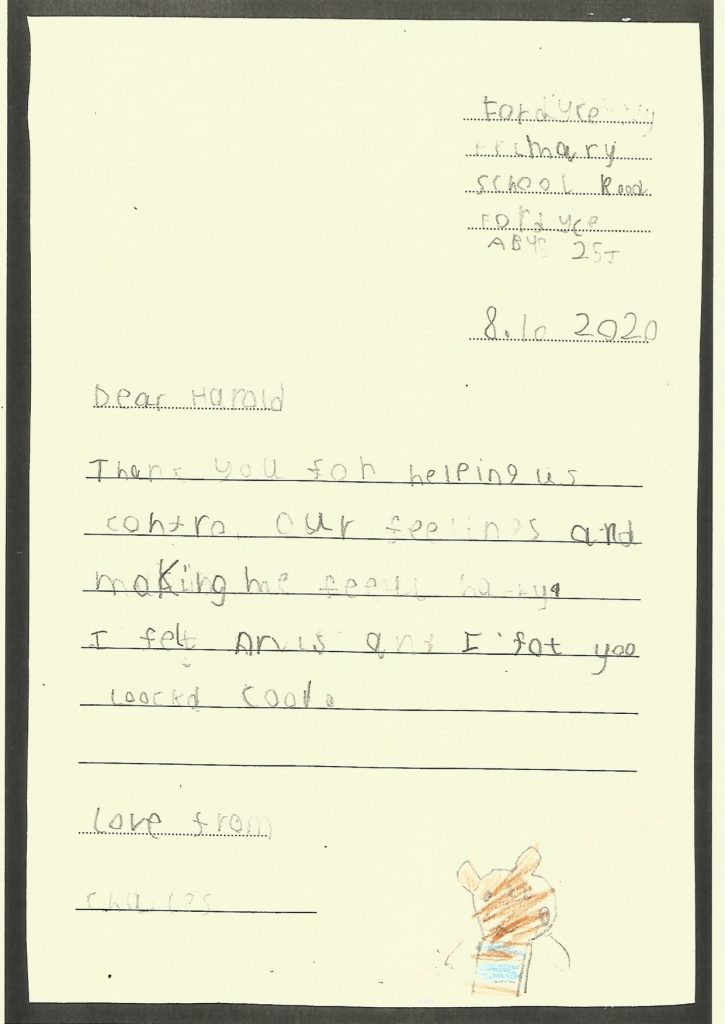 Fordyce
Primary
School Road
Fordyce
AB45 2SJ
8.10 2020
Dear Harold
Thank you for helping us
control our feelings and
making me feeul happy.
I felt nrvis and I fot you
loockd cool.
Love from
Charles